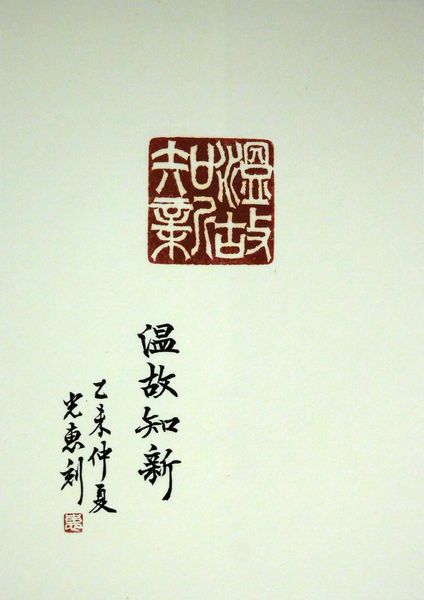 温故知新
温故知新
乙未仲夏
光惠刻